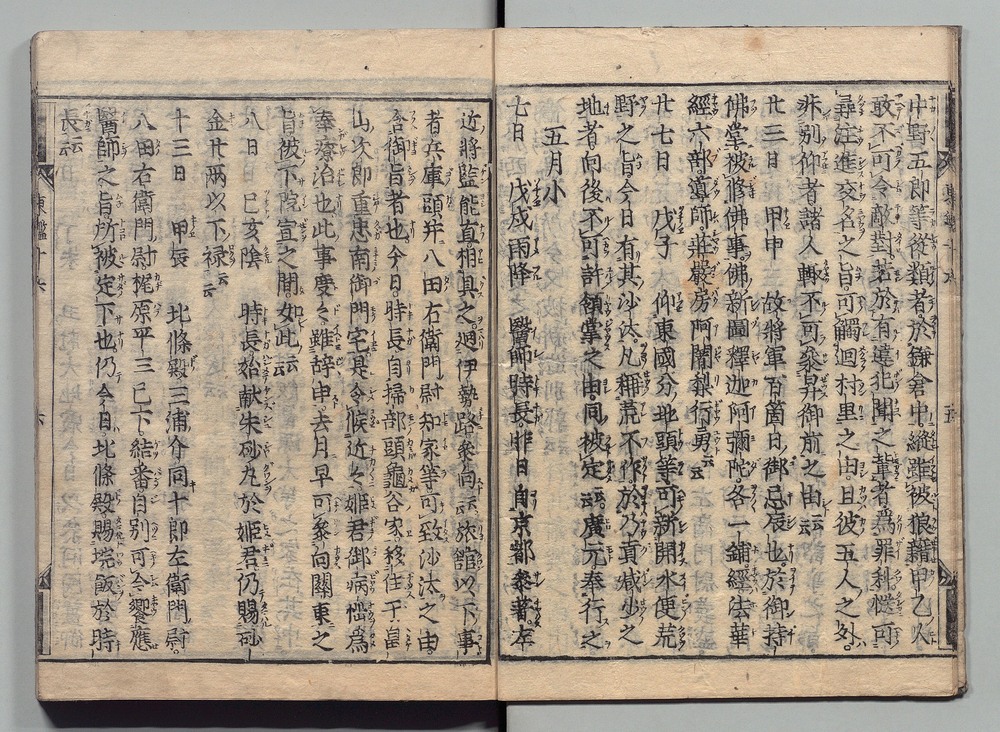 中野五郎等従類者於鎌倉中縦雖被狼藉甲乙人
敢不可令敵對若於有違犯聞之輩者為罪科慥可
尋注進交名之旨可觸廻村里之由且彼五人之外
非別仰者諸人輙不可參昇御前之由云云
廿三日 甲申 故將軍百箇日御忌辰也於御持
佛堂被修佛事佛新圖釋迦阿彌陀各一鋪經法華
經六部導師莊嚴房阿闍梨行勇云云
廿七日 戊子 仰東國分地頭等可新開水便荒
野之旨今日有其沙汰凡稱荒不作於乃貢減少之
地者向後不可許領掌之由同被定云云廣元奉行之
五月小
七日 戊戌雨降 醫師時長昨日自京都參著左
近將監能直相具之廻伊勢路參向云云旅館以下事
者兵庫頭并八田右衛門尉知家等可致沙汰之由
含御旨者也今日時長自掃部頭龜谷家移住于畠
山次郎重忠南御門宅是令候近々姫君御病惱為
奉療治也此事度々雖辞申去月早可參向關東之
旨被下院宣之間如此云云
八日 己亥陰 時長始献朱砂丸於姫君仍賜砂
金廿兩以下禄云云
十三日 甲辰 北條殿三浦介同十郎左衛門尉
八田右衛門尉梶原平三已下結番自別可令饗應
醫師之旨所被定下也仍今日北條殿賜垸飯於時
長云云
東鑑十六
五
六